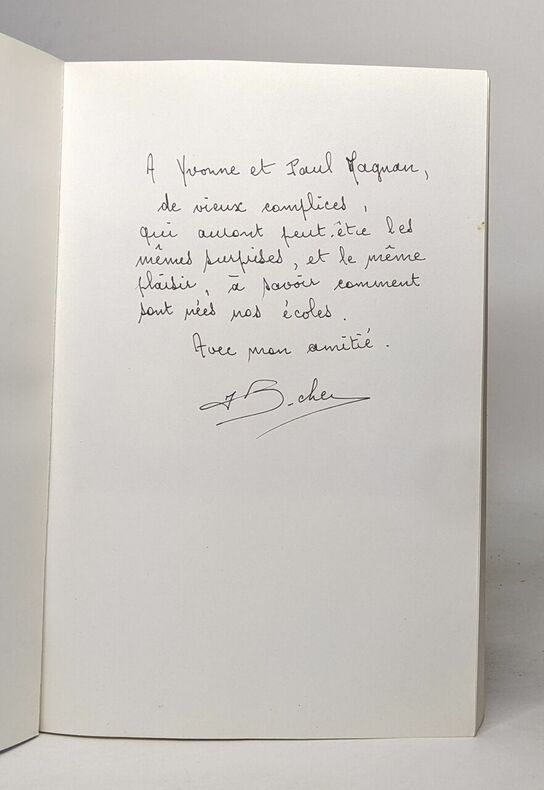 A Yvonne et Paul Magnan,
de vieux complices,
qui auront peut-être les
mêmes surprises, et le même
plaisir, à savoir comment
sont nées nos écoles.
Avec mon amitié.